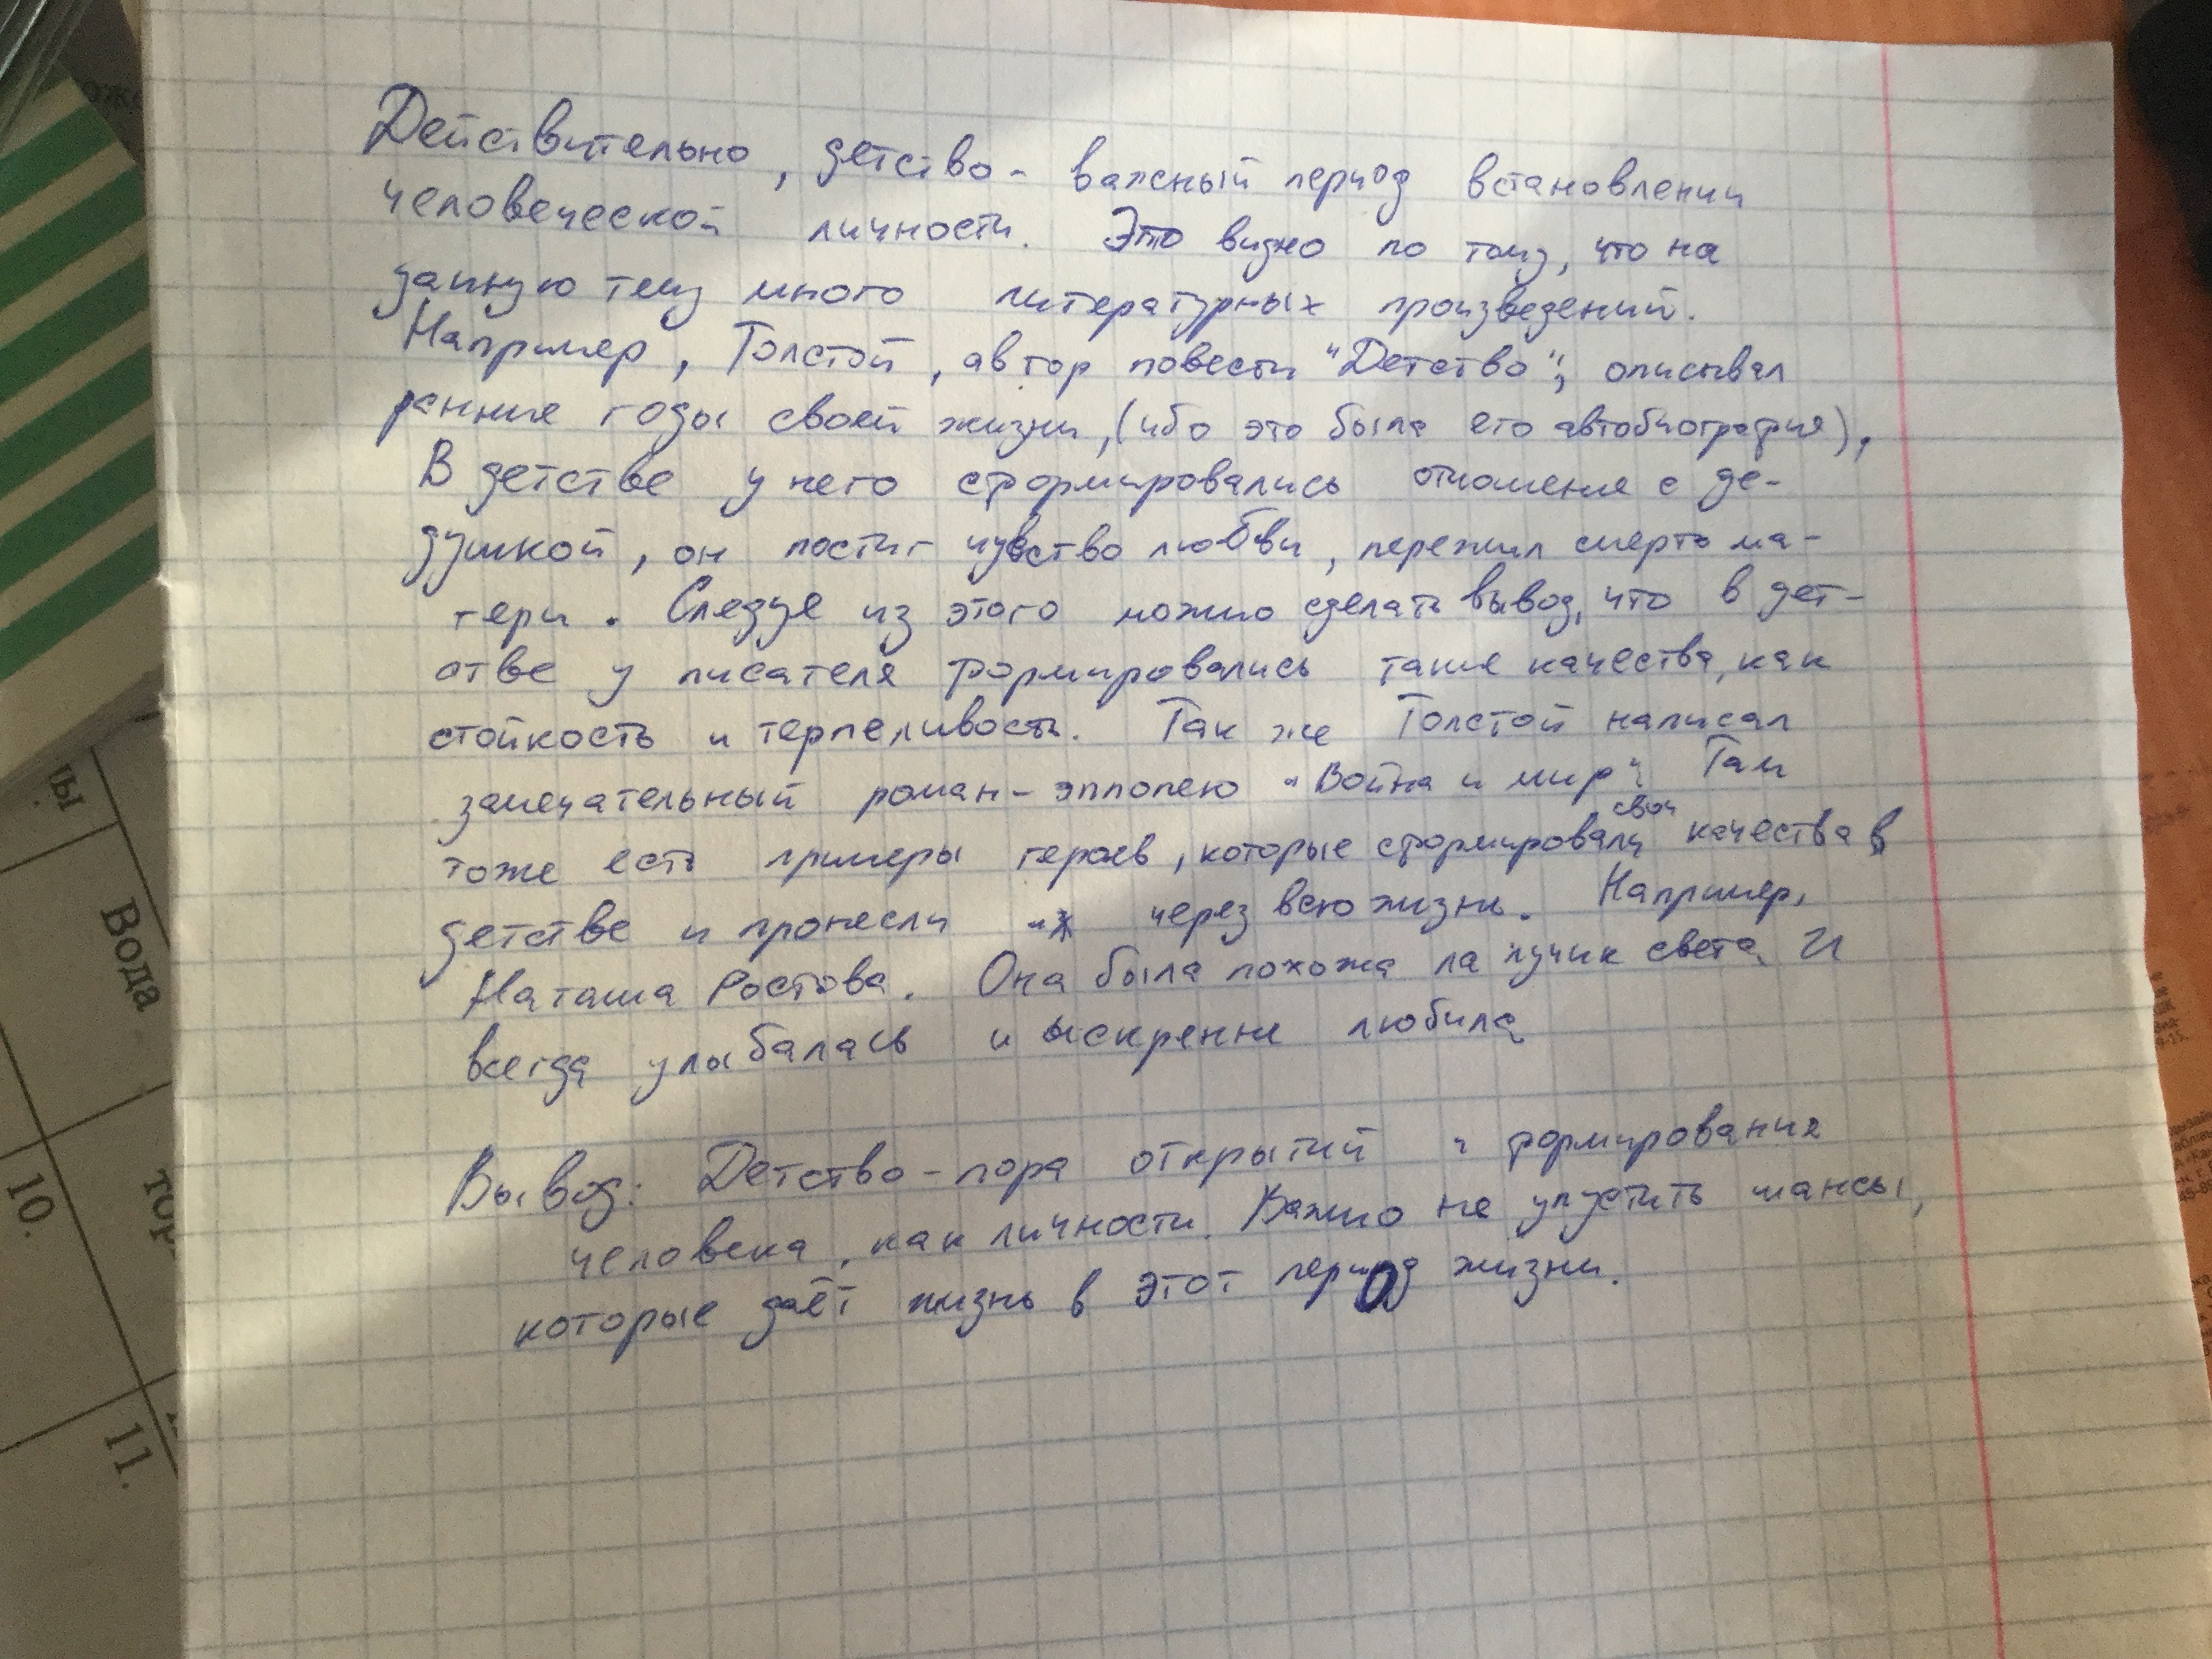 Действительно, детство - важный период встановлении
человеческой личности. Это видно по тому, что на
данную тему много литературных произведений.
Например, Толстой, автор повести "Детство", описывал
ранние годы своей жизни, (ибо это была его автобиография),
В детстве у него сформировались отношение с де-
душкой, он постиг чувство любви, пережил смерть ма-
тери. Следуе из этого можно сделать вывод, что в дет-
стве у писателя формировались такие качества, как
стойкость и терпеливость. Так же Толстой написал
замечательный роман-эппопею "Война и мир". Там
тоже есть примеры героев, которые сформировали свои качества в
детстве и пронесли их через всю жизнь. Например,
Наташа Ростова. Она была похожа на лучик света. И
всегда улыбалась и искренне любила
Вывод: Детство - пора открытий и формирования
человека, как личности. Важно не упустить шансы,
которые даёт жизнь в этот период жизни.
Вода
тор
10.
11.
цы